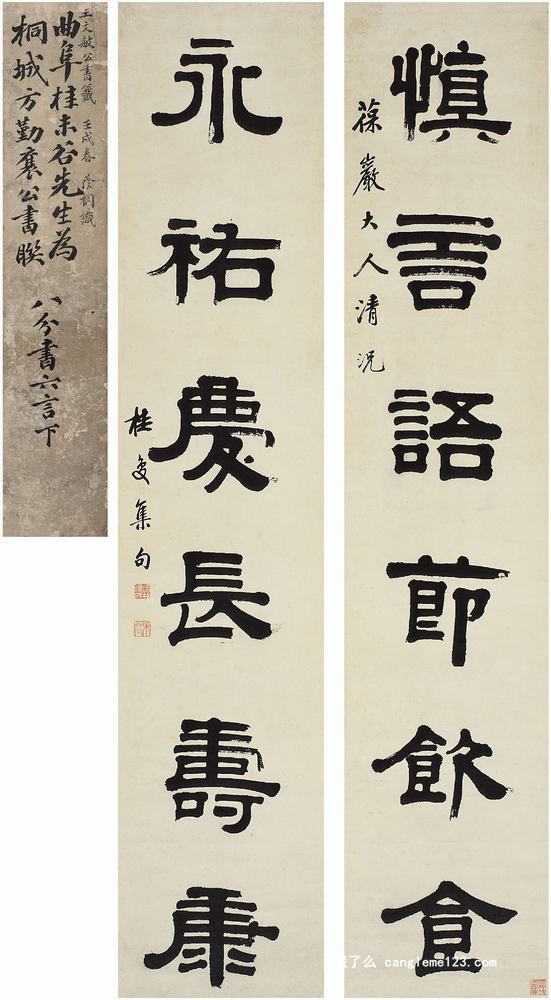 慎言語節飲食
葆巖大人清況
永祐慶長壽康
桂复集句
王文敏公書籤 壬戌春 蔭桐識
曲阜桂未谷先生為
桐城方勤襄公書聯 八分書六言下
了么 cangleme123.com